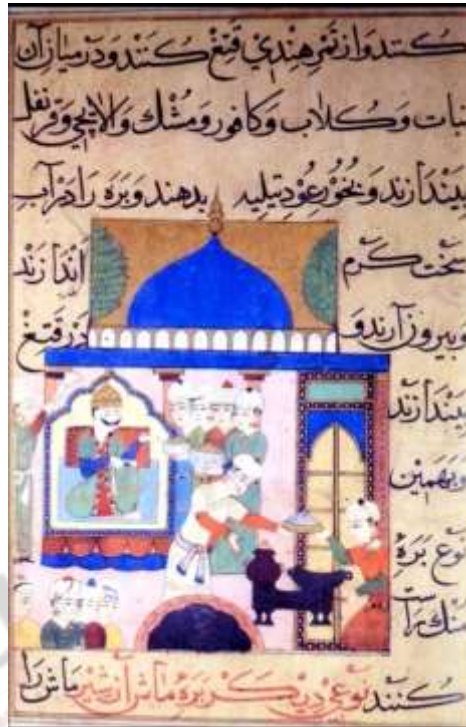 کنند و از تمر هندی قتغ کنند و در میان آن
نبات و کلاب و کافور و مشک و الایچی و قرنفل
بیندازند و بخور عود تیلیه بدهند و بره را در آب
سخت کرم اندازند
و بیرون آرند و در قتغ
بیندازند
و بهمین
نوع بره
منک راست
کنند نوعی دیکر بره ماش آن شیر ماش را